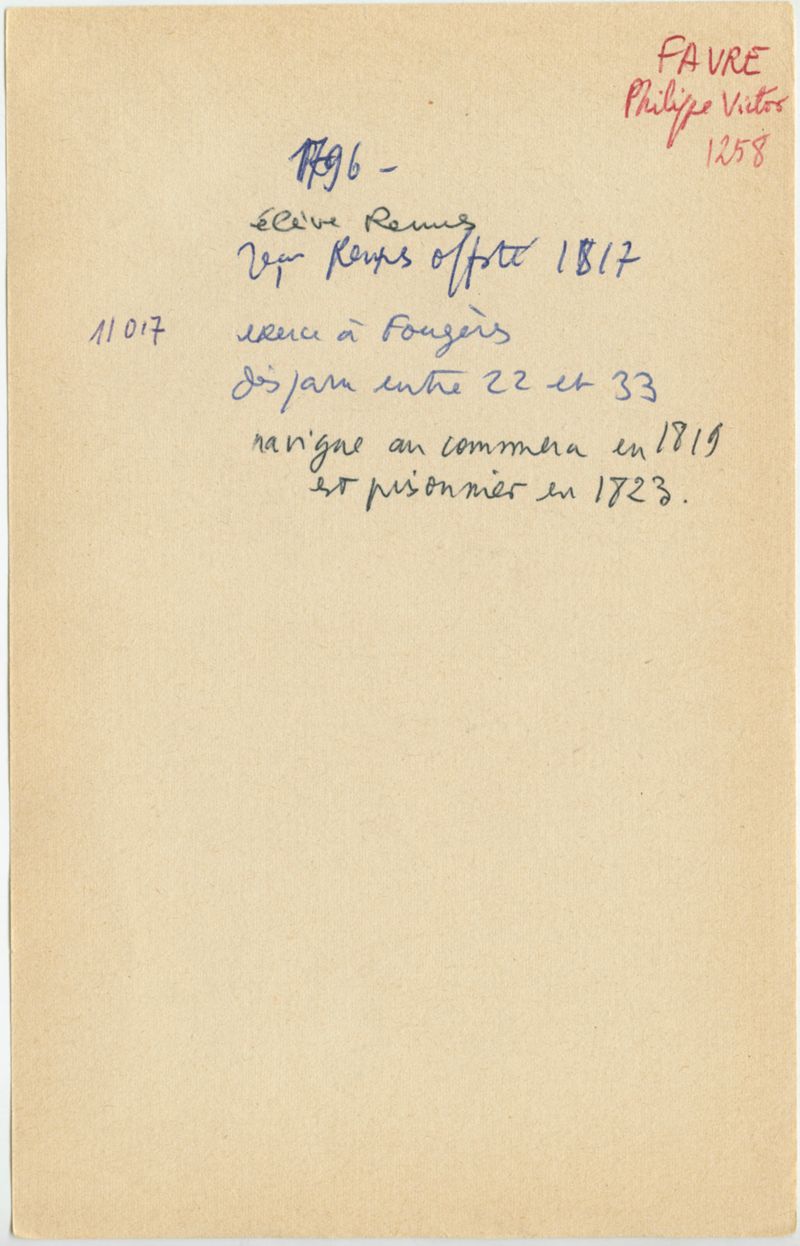 FAVRE
Philippe Victor
1258
1796 -
élève Rennes
reçu Rennes off sté 1817
11017 exerce à Fougères
disparu entre 22 et 33
navigue au commerce en 1819
est prisonnier en 1823.